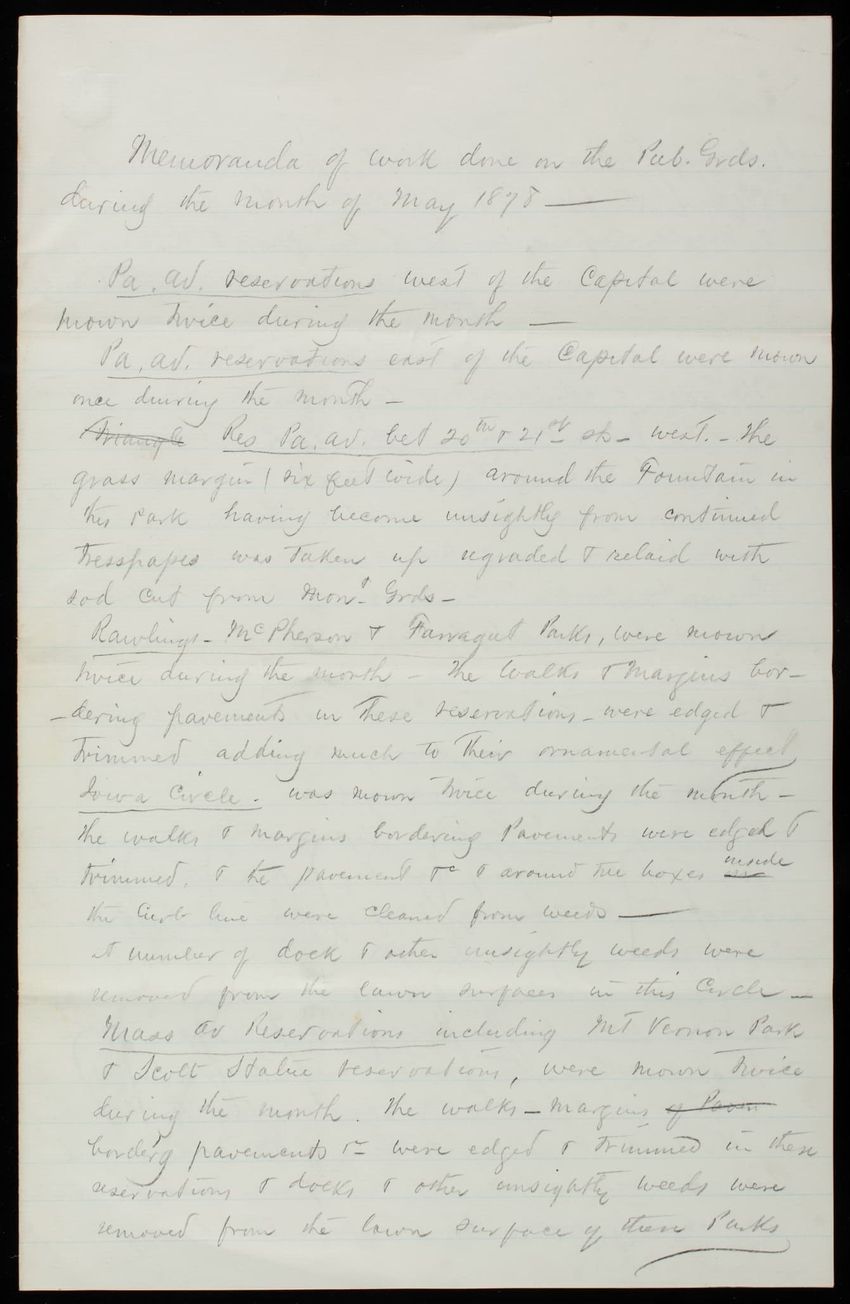 Memoranda of work done on the Pub. Grds.
during the month of May 1878 —
Pa. av. reservations west of the Capitol were
mown twice during the month —
Pa. av. reservations east of the Capitol were mown
once during the month —
Triangle Res Pa. av. bet 20th & 21st sts — west. — The
grass margin (six feet wide) around the Fountain in
this Park having become unsightly from continued
tresspapes was taken up regraded & relaid with
sod cut from Mont. Grds —
Rawlings — McPherson & Farragut Parks, were mown
twice during the month — The walks & margins bor-
-dering pavements in these reservations — were edged &
trimmed adding much to their ornamental effect
Iowa Circle. was mown twice during the month —
the walks & margins bordering Pavements were edged &
trimmed. & the pavement &c & around the boxes inside
the Curb line were cleaned from weeds —
A number of dock & other unsightly weeds were
removed from the lawn surfaces in this Circle —
Mass av Reservations including Mt Vernon Park
& Scott Statue reservations, were mown twice
during the month. The walks — margins of Pavm
borderg pavements &c were edged & trimmed in these
reservations & docks & other unsightly weeds were
removed from the lawn surface of these Parks